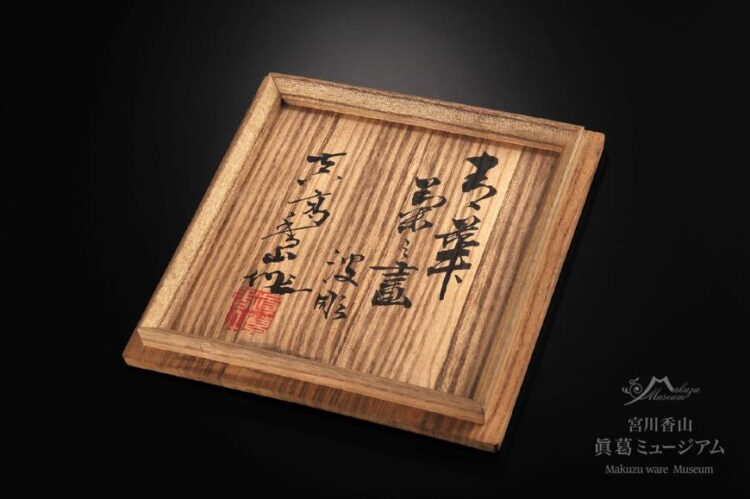 青華
菊之畫
波彫
真葛香山作
Makuzu
Museum
宮川香山
眞葛ミュージアム
Makuzu ware Museum